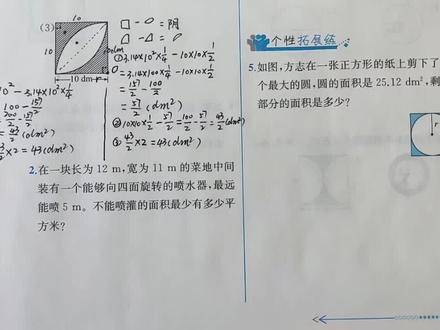 (3)
10
10
10 dm
□ - 0 = 阴
□ - △ = 0
①3.14×10²×1/4 - 10×10×1/2
=3.14×100×1/4 - 10×10×1/2
=157/2 - 100/2
=57/2 (dm²)
②10×10×1/2 - 57/2 = 100/2 - 57/2 = 43/2 (dm²)
③ 43/2 ×2 = 43(dm²)
0² - 3.14×10²×1/4
100 - 157/2
200/2 - 157/2
43/2 (dm²)
×2 = 43(dm²)
2.在一块长为 12 m,宽为 11 m 的菜地中间
装有一个能够向四面旋转的喷水器,最远
能喷 5 m。不能喷灌的面积最少有多少平
方米?
个性拓展练
5.如图,方志在一张正方形的纸上剪下了
个最大的圆,圆的面积是 25.12 dm²,剩
部分的面积是多少?
r